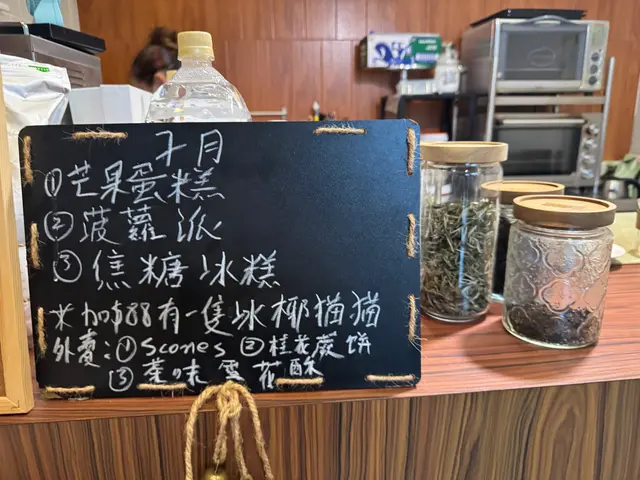 7月
①芒果蛋糕
②菠蘿派
③焦糖冰糕
*加$88有一隻冰椰猫猫
外賣:①Scones ②桂花蕨饼
③茶味雪花酥